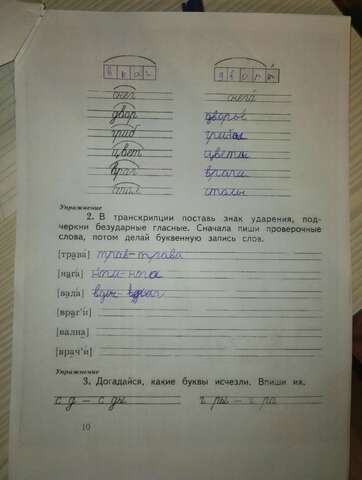 в р а г д в о р ы
снег снега́
двор дворы́
гриб грибы
цвет цветы
враг враги
стол столы
Упражнение
2. В транскрипции поставь знак ударения, под-
черкни безударные гласные. Сначала пиши проверочные
слова, потом делай буквенную запись слов.
[трава́] трав-трава
[нага́] ноги-нога
[вада́] воды-
[враг'и́]
[вална]
[врач'и́]
Упражнение
3. Догадайся, какие буквы исчезли. Впиши их.
с д – с ды г ры – г ра
10